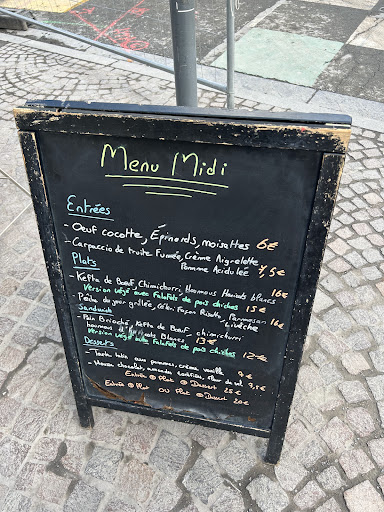 Menu Midi
Entrées
- Oeuf cocotte, Épinards, noisettes 6€
- Carpaccio de truite Fumée, Crème Aigrelette,
Pomme Acidulée 7,5€
Plats
- Kefta de Bœuf, Chimichurri, Houmous Haricots blancs 16€
Version végé avec Falafels de pois chiches 15€
- Pêche du jour grillée, Céleri Façon Risotto, Parmesan
Livèche 16€
Sandwich
- Pain Brioché, Kefta de Bœuf, chimichurri
houmous Haricots Blancs 13€
Version végé avec Falafels de pois chiches 12€
Desserts
- Tarte tatin aux pommes, crème vanille
- Mousse chocolat, fleur de sel
Entrée Plat Dessert 25€
Entrée Plat OU Plat Dessert 20€